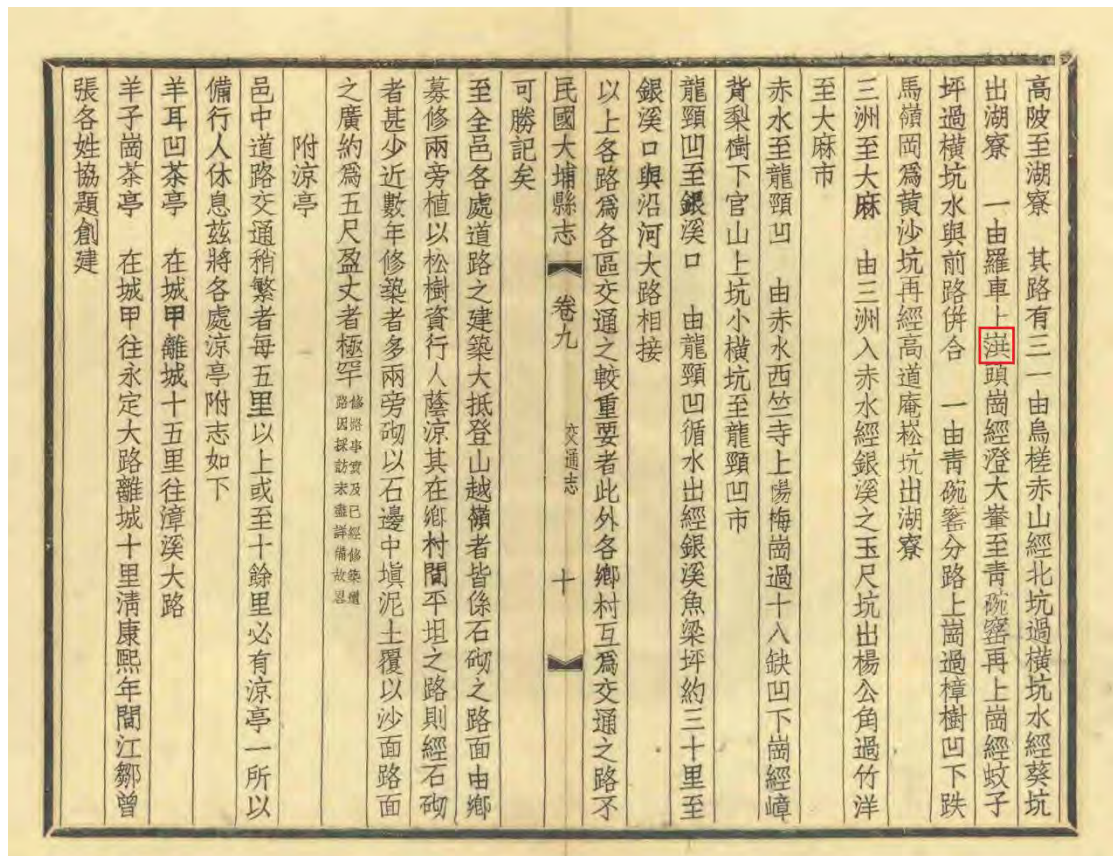 高陂至湖寮　其路有三一由烏槎赤山經北坑過橫坑水經葵坑
出湖寮　一由羅車上頭崗經澄大輋至青碗窰再上崗經蚊子
坪過橫坑水與前路併合　一由青碗窰分路上崗過樟樹凹下跌
馬嶺岡爲黄沙坑再經高道庵崧坑出湖寮
三洲至大麻　由三洲入赤水經銀溪之玉尺坑出楊公角過竹洋
至大麻市
赤水至龍頸凹　由赤水西竺寺上陽梅崗過十八缺凹下崗經嶂
背梨樹下官山上坑小橫坑至龍頸凹市
龍頸凹至銀溪口　由龍頸凹循水出經銀溪魚梁坪約三十里至
銀溪口與沿河大路相接
以上各路爲各區交通之較重要者此外各鄉村互爲交通之路不
民國大埔縣志　卷九　交通志　十
可勝記矣
至全邑各處道路之建築大抵登山越嶺者皆係石砌之路面由鄉
募修兩旁植以松樹資行人蔭涼其在鄉村間平坦之路則經石砌
者甚少近數年修築者多兩旁砌以石邊中塡泥土覆以沙面路面
之廣約爲五尺盈丈者極罕
修路事實及已經修築
路因採訪未盡詳備故畧
附涼亭
邑中道路交通稍繁者每五里以上或至十餘里必有涼亭一所以
備行人休息茲將各處涼亭附志如下
羊耳凹茶亭　在城甲離城十五里往漳溪大路
羊子崗茶亭　在城甲往永定大路離城十里淸康熙年間江鄒曾
張各姓協題創建